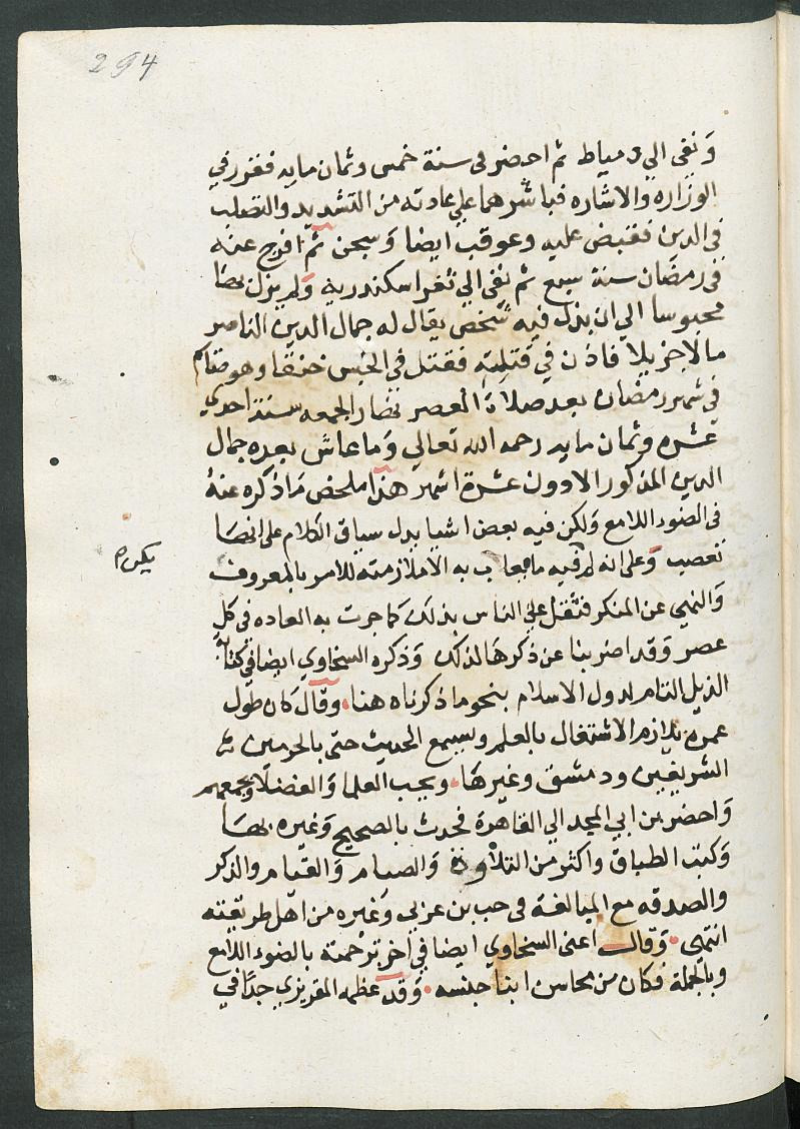 294
ونفي الي دمياط ثم احضر في سنة خمس وثمان مايه فقرر في
الوزاره والاشاره فباشرهما علي عادته من التشديد والتصلب
في الدين فقبض عليه وعوقب ايضا وسجن ثم افرج عنه
في رمضان سنة سبع ثم نفي الي ثغر اسكندريه ولم يزل بها
محبوسا الي ان بذل فيه شخص يقال له جمال الدين الناصر
مالا جزيلا فاذن في قتله فقتل في الحبس خنقا وهو صايم
في شهر رمضان بعد صلاة العصر نهار الجمعه سنة احدي
عشره وثمان مايه رحمه الله تعالي وما عاش بعده جمال
الدين المذكور الا دون عشرة اشهر هذا ملخص ما ذكره عنه
في الضوء اللامع ولكن فيه بعض اشيا يدل سياق الكلام علي انها
تعصب وعلي انه لم فيه ما يعاب به الا ملازمته للامر بالمعروف
يكن م
والنهي عن المنكر فثقل علي الناس بذلك كما جرت به العاده في كل
عصر وقد اضربنا عن ذكرها لذلك وذكره السخاوي ايضا في كتابه
الذيل التام لدول الاسلام بنحو ما ذكرناه هنا. وقال كان طول
عمره يلازم الاشتغال بالعلم وسمع الحديث حتي بالحرمين
الشريفين ودمشق وغيرها. ويحب العلما والفضلا ويجمعهم
واحضر بن ابي المجد الي القاهرة فحدث بالصحيح وغيره بها
وكتب الطباق واكثر من التلاوة والصيام والقيام والذكر
والصدقه مع المبالغة في حب بن عربي وغيره من اهل طريقته
انتهي. وقال اعني السخاوي ايضا في اخر ترجمته بالضوء اللامع
وبالجملة فكان من محاسن ابنا جنسه. وقد عظمه المقريزي جدا في